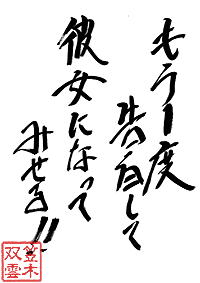 もう1度
告白して
彼女になって
みせる!!
笠木
双雲